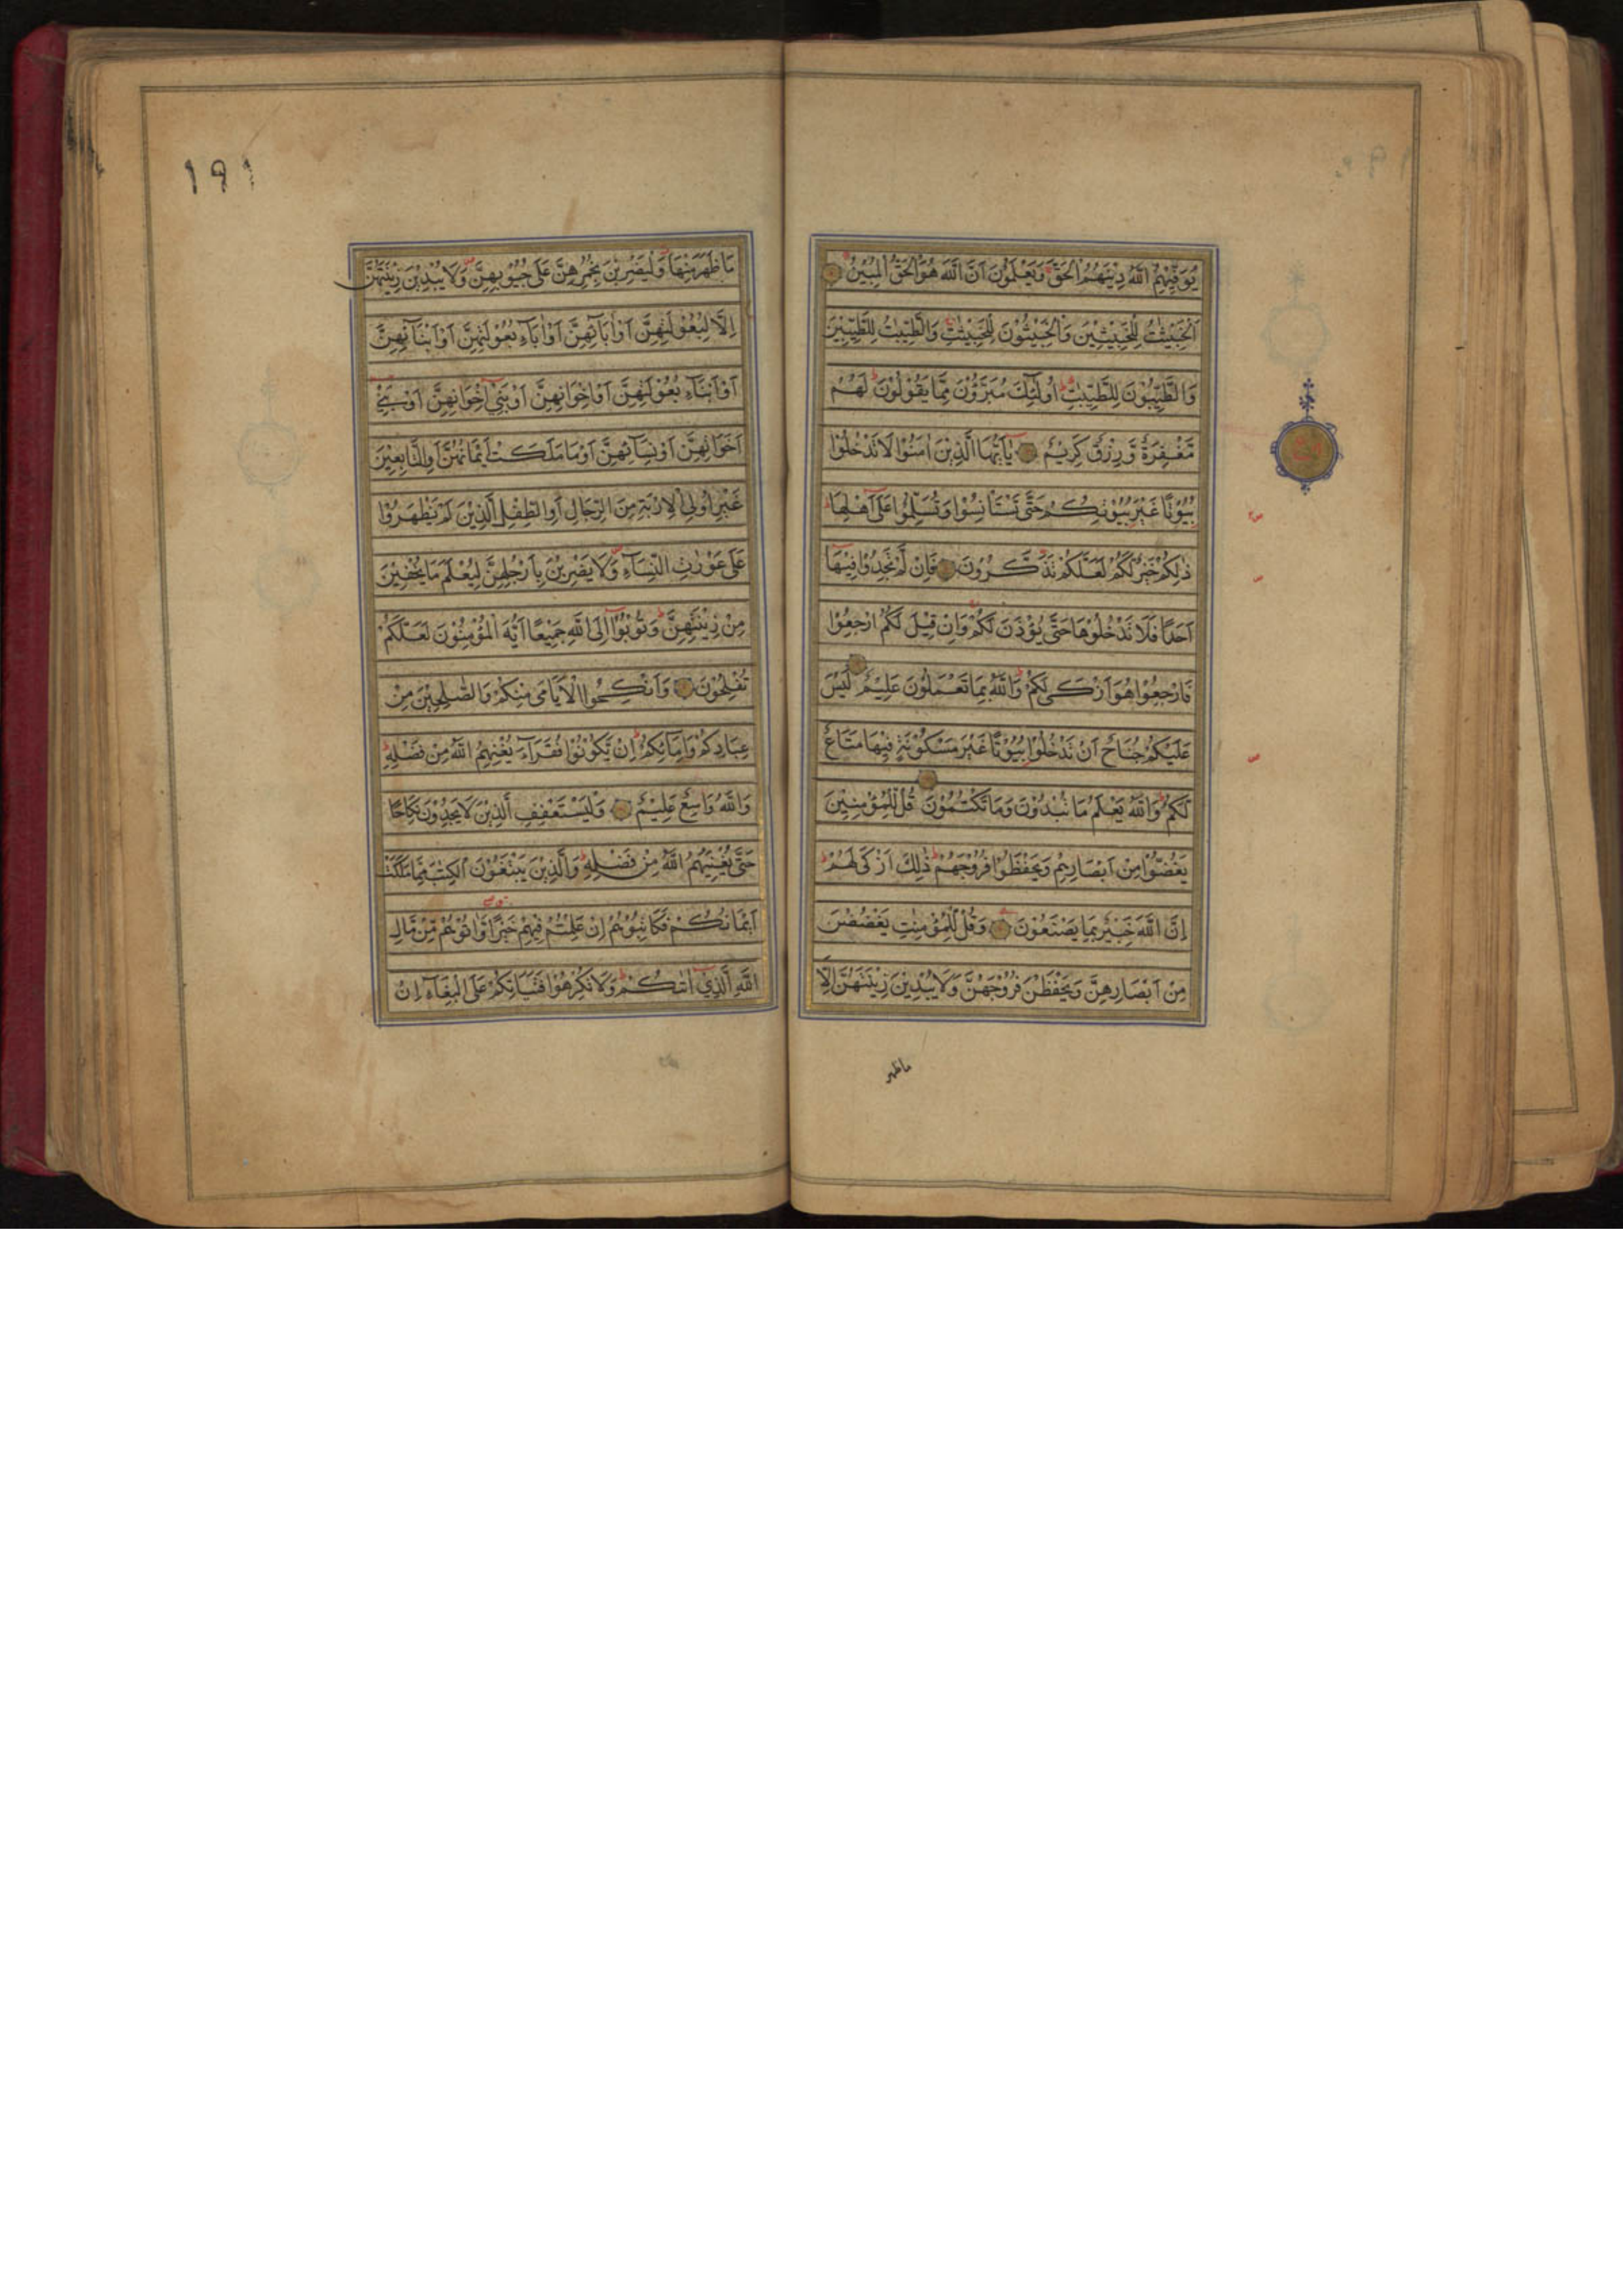 يُوَفِّيهِمُ اللّٰهُ دِينَهُمُ الْحَقَّ وَيَعْلَمُونَ اَنَّ اللّٰهَ هُوَ الْحَقُّ الْمُبِينُ
اَلْخَبِيثٰتُ لِلْخَبِيثِينَ وَالْخَبِيثُونَ لِلْخَبِيثٰتِ وَالطَّيِّبٰتُ لِلطَّيِّبِينَ
وَالطَّيِّبُونَ لِلطَّيِّبٰتِ اُولٰٓئِكَ مُبَرَّؤُنَ مِمَّا يَقُولُونَ لَهُمْ
مَّغْفِرَةٌ وَّرِزْقٌ كَرِيمٌ يٰٓاَيُّهَا الَّذِينَ اٰمَنُوا لَا تَدْخُلُوا
بُيُوتًا غَيْرَ بُيُوتِكُمْ حَتّٰى تَسْتَاْنِسُوا وَتُسَلِّمُوا عَلٰٓى اَهْلِهَا
ذٰلِكُمْ خَيْرٌ لَّكُمْ لَعَلَّكُمْ تَذَكَّرُونَ فَاِنْ لَّمْ تَجِدُوا فِيهَآ
اَحَدًا فَلَا تَدْخُلُوهَا حَتّٰى يُؤْذَنَ لَكُمْ وَاِنْ قِيلَ لَكُمُ ارْجِعُوا
فَارْجِعُوا هُوَ اَزْكٰى لَكُمْ وَاللّٰهُ بِمَا تَعْمَلُونَ عَلِيمٌ لَيْسَ
عَلَيْكُمْ جُنَاحٌ اَنْ تَدْخُلُوا بُيُوتًا غَيْرَ مَسْكُونَةٍ فِيهَا مَتَاعٌ
لَّكُمْ وَاللّٰهُ يَعْلَمُ مَا تُبْدُونَ وَمَا تَكْتُمُونَ قُلْ لِّلْمُؤْمِنِينَ
يَغُضُّوا مِنْ اَبْصَارِهِمْ وَيَحْفَظُوا فُرُوجَهُمْ ذٰلِكَ اَزْكٰى لَهُمْ
اِنَّ اللّٰهَ خَبِيرٌ بِمَا يَصْنَعُونَ وَقُلْ لِّلْمُؤْمِنٰتِ يَغْضُضْنَ
مِنْ اَبْصَارِهِنَّ وَيَحْفَظْنَ فُرُوجَهُنَّ وَلَا يُبْدِينَ زِينَتَهُنَّ اِلَّا
ماظهر
١٩١
مَا ظَهَرَ مِنْهَا وَلْيَضْرِبْنَ بِخُمُرِهِنَّ عَلٰى جُيُوبِهِنَّ وَلَا يُبْدِينَ زِينَتَهُنَّ
اِلَّا لِبُعُولَتِهِنَّ اَوْ اٰبَآئِهِنَّ اَوْ اٰبَآءِ بُعُولَتِهِنَّ اَوْ اَبْنَآئِهِنَّ
اَوْ اَبْنَآءِ بُعُولَتِهِنَّ اَوْ اِخْوَانِهِنَّ اَوْ بَنِيٓ اِخْوَانِهِنَّ اَوْ بَنِيٓ
اَخَوَاتِهِنَّ اَوْ نِسَآئِهِنَّ اَوْ مَا مَلَكَتْ اَيْمَانُهُنَّ اَوِ التَّابِعِينَ
غَيْرِ اُولِي الْاِرْبَةِ مِنَ الرِّجَالِ اَوِ الطِّفْلِ الَّذِينَ لَمْ يَظْهَرُوا
عَلٰى عَوْرٰتِ النِّسَآءِ وَلَا يَضْرِبْنَ بِاَرْجُلِهِنَّ لِيُعْلَمَ مَا يُخْفِينَ
مِنْ زِينَتِهِنَّ وَتُوبُوٓا اِلَى اللّٰهِ جَمِيعًا اَيُّهَ الْمُؤْمِنُونَ لَعَلَّكُمْ
تُفْلِحُونَ وَاَنْكِحُوا الْاَيَامٰى مِنْكُمْ وَالصّٰلِحِينَ مِنْ
عِبَادِكُمْ وَاِمَآئِكُمْ اِنْ يَّكُونُوا فُقَرَآءَ يُغْنِهِمُ اللّٰهُ مِنْ فَضْلِهِ
وَاللّٰهُ وَاسِعٌ عَلِيمٌ وَلْيَسْتَعْفِفِ الَّذِينَ لَا يَجِدُونَ نِكَاحًا
حَتّٰى يُغْنِيَهُمُ اللّٰهُ مِنْ فَضْلِهِ وَالَّذِينَ يَبْتَغُونَ الْكِتٰبَ مِمَّا مَلَكَتْ
اَيْمَانُكُمْ فَكَاتِبُوهُمْ اِنْ عَلِمْتُمْ فِيهِمْ خَيْرًا وَّاٰتُوهُمْ مِّنْ مَّالِ
اللّٰهِ الَّذِيٓ اٰتٰكُمْ وَلَا تُكْرِهُوا فَتَيَاتِكُمْ عَلَى الْبِغَآءِ اِنْ